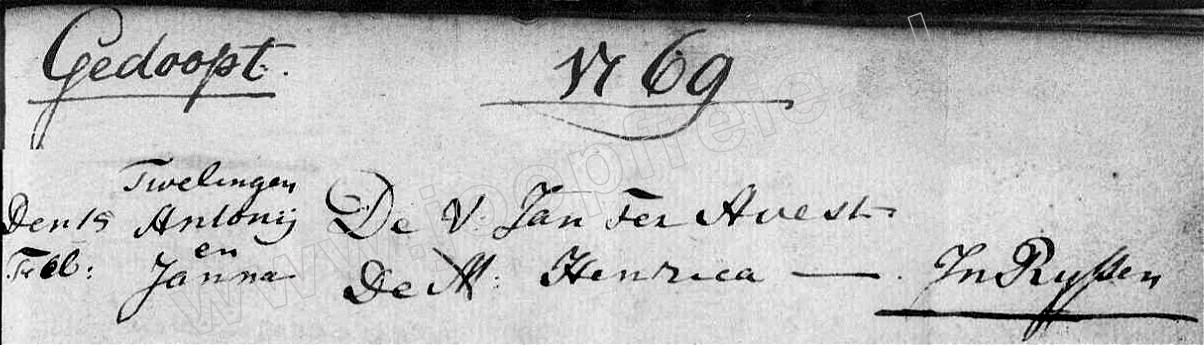 Gedoopt. 1769
Twelingen
Den 19 Antonij De V: Jan Ter Avest
en
Feb: Janna De M: Henrica — In Ryssen